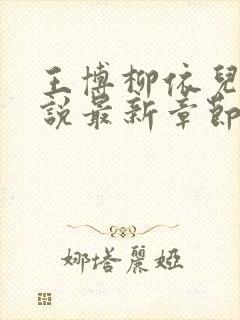 王博柳依兒
說最新章節
娜塔麗婭